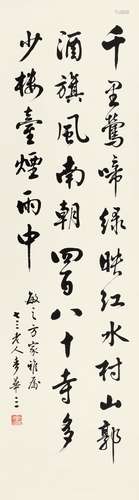 千里鶯啼綠映紅水村山郭
酒旗風南朝四百八十寺多
少樓臺煙雨中
敏之方家雅屬
七三老人